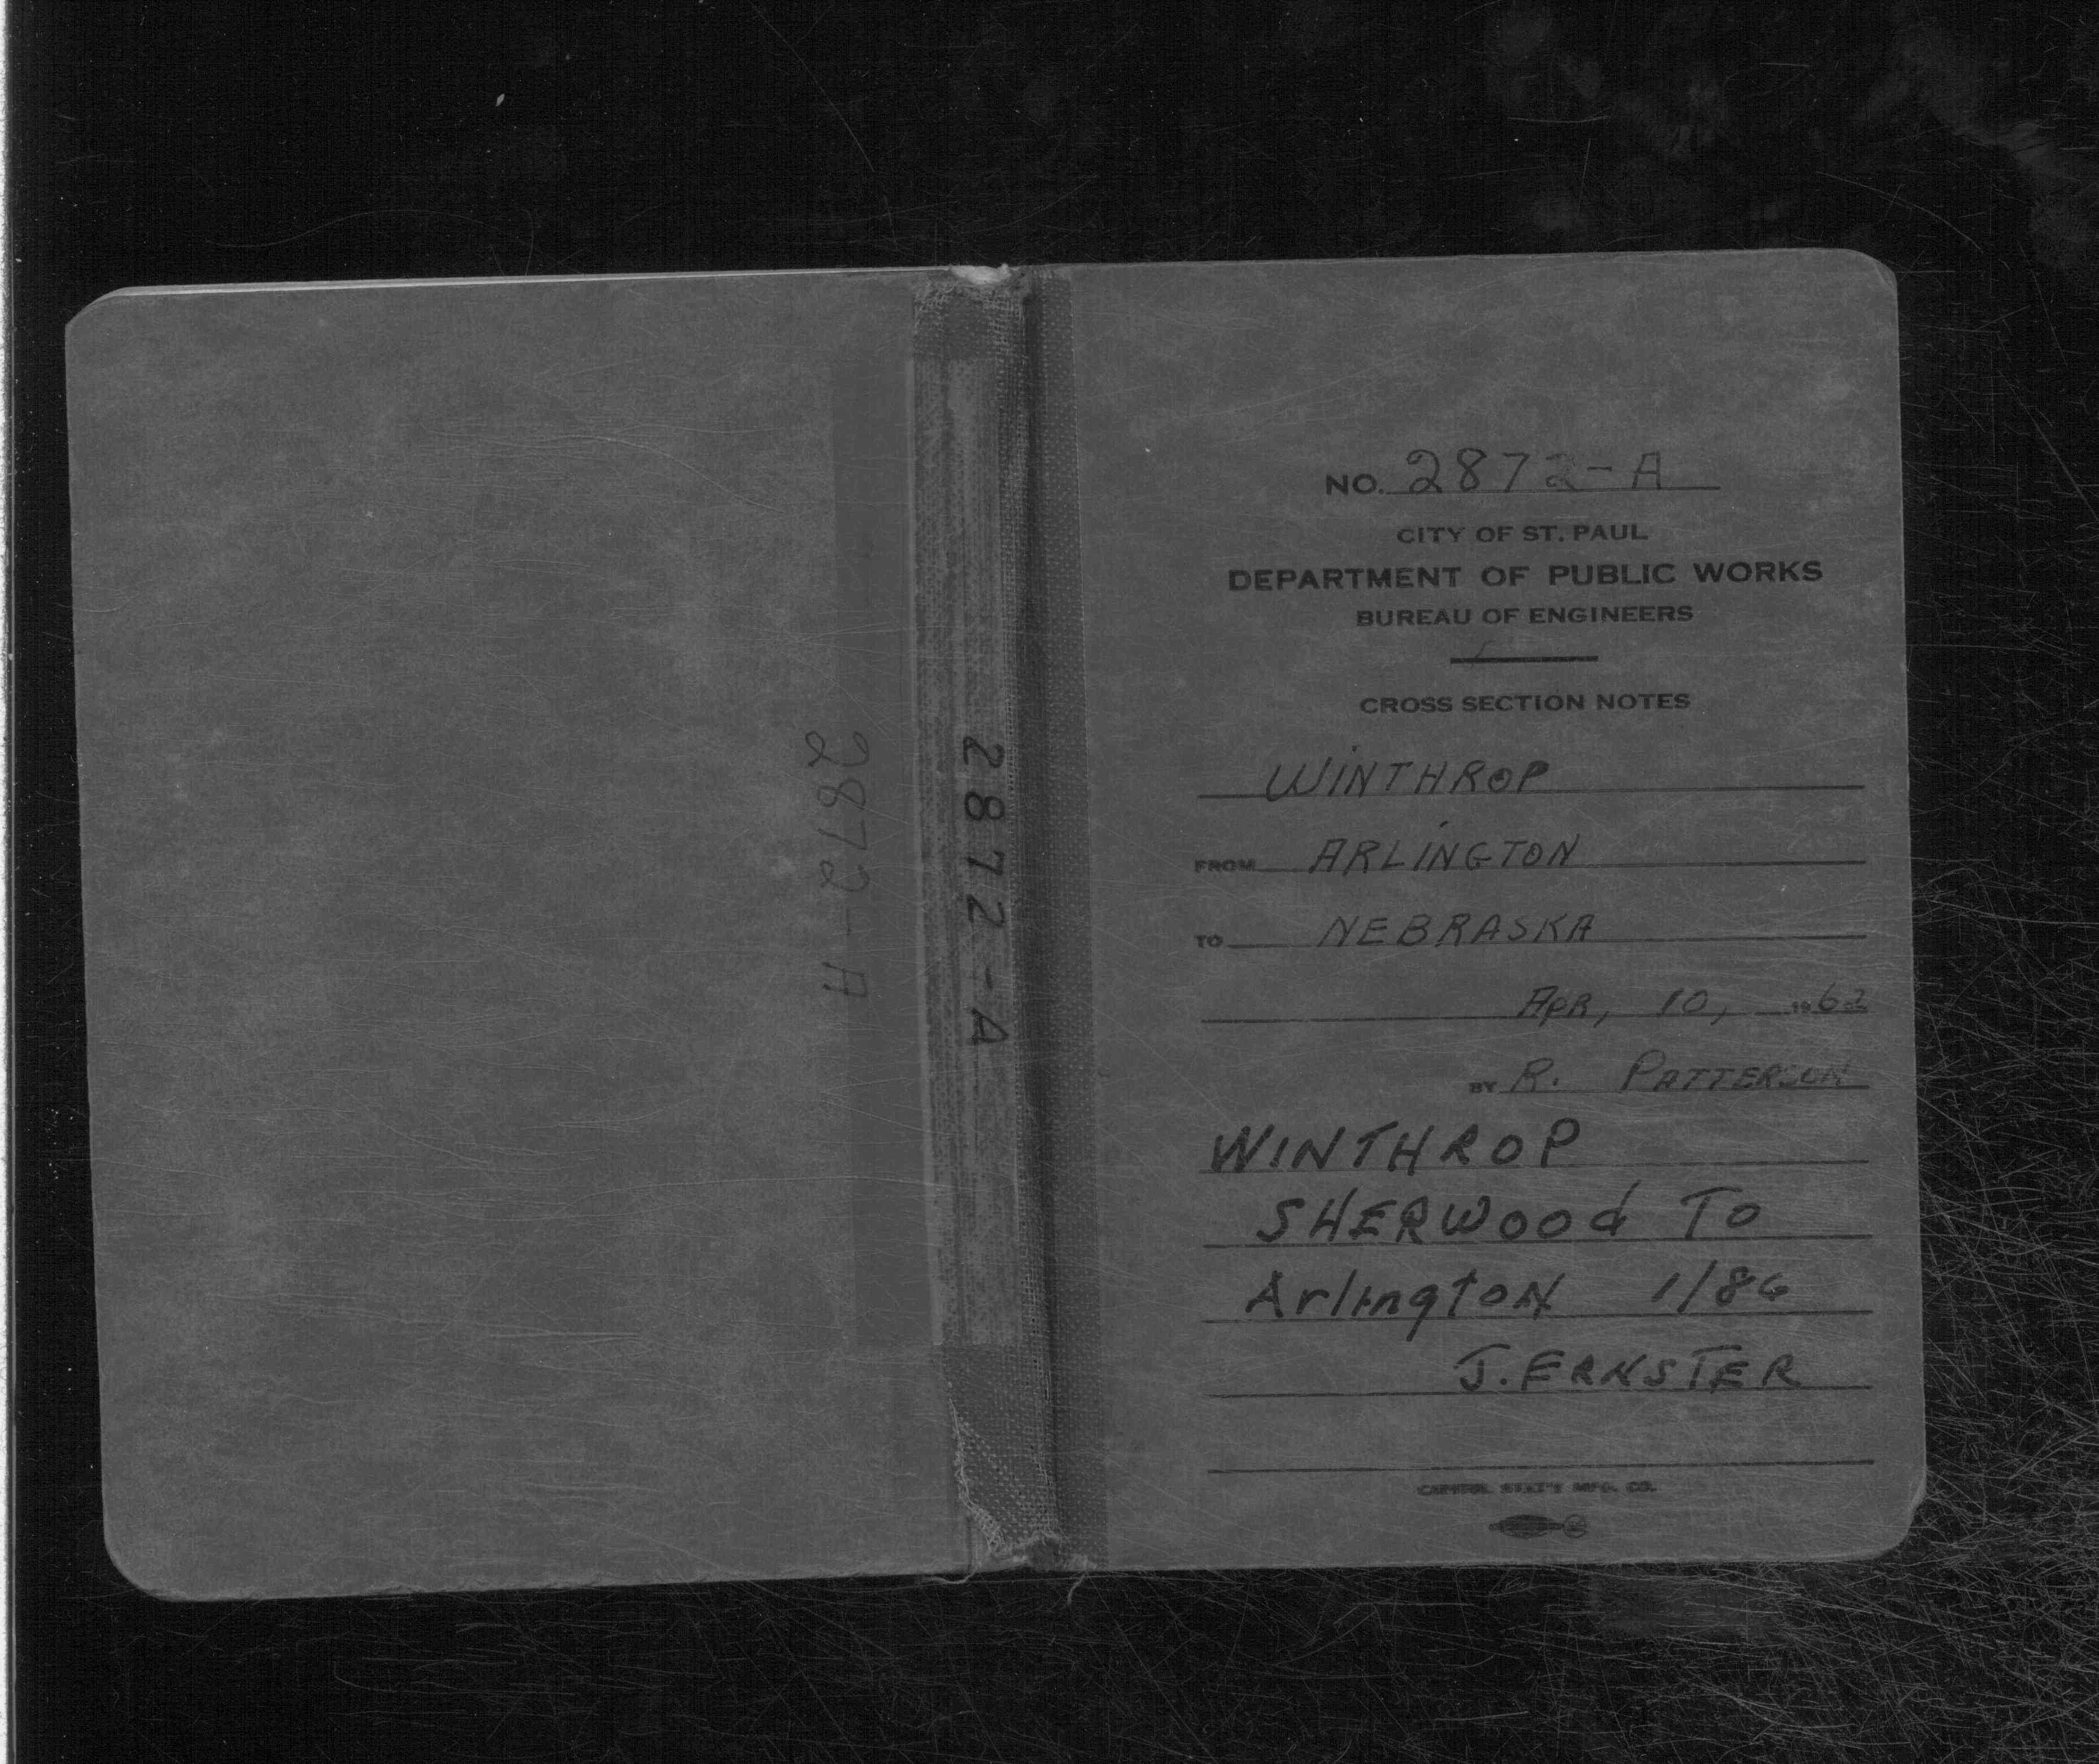 2872-A
2872-A
NO. 2872-A
CITY OF ST. PAUL
DEPARTMENT OF PUBLIC WORKS
BUREAU OF ENGINEERS
CROSS SECTION NOTES
WINTHROP
FROM ARLINGTON
TO NEBRASKA
APR, 10, 1962
BY R. PATTERSON
WINTHROP
SHERWOOd To
ArlingtoN 1/86
J. ERNSTER
CAPITOL STAT'Y MFG. CO.